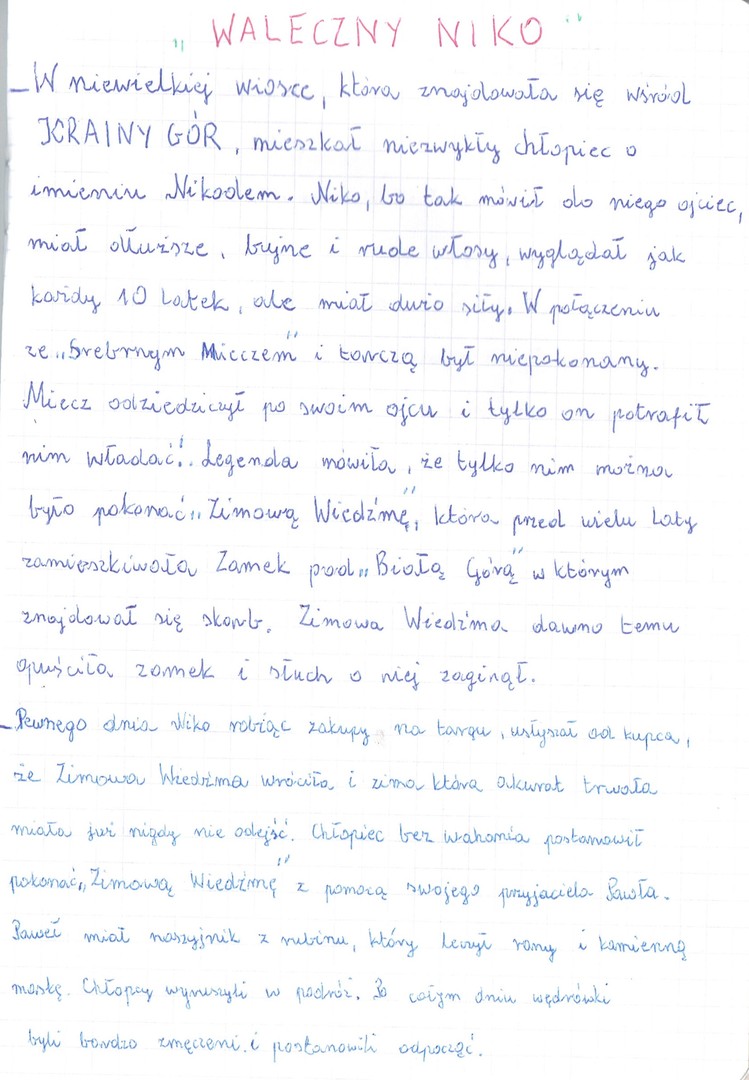 „WALECZNY NIKO"
W niewielkiej wiosce, która znajdowała się wśród
KRAINY GÓR, mieszkał niezwykły chłopiec o
imieniu Nikodem. Niko, bo tak mówił do niego ojciec,
miał dłuższe, bujne i rude włosy, wyglądał jak
każdy 10 latek, ale miał dużo siły. W połączeniu
ze „Srebrnym Mieczem" i tarczą był niepokonany.
Miecz odziedziczył po swoim ojcu i tylko on potrafił
nim władać!. Legenda mówiła, że tylko nim można
było pokonać „Zimową Wiedźmę", która przed wielu laty
zamieszkiwała Zamek pod „Białą Górą" w którym
znajdował się skarb. Zimowa Wiedźma dawno temu
opuściła zamek i słuch o niej zaginął.
Pewnego dnia Niko robiąc zakupy na targu, usłyszał od kupca,
że Zimowa Wiedźma wróciła i zima która akurat trwała
miała już nigdy nie odejść. Chłopiec bez wahania postanowił
pokonać „Zimową Wiedźmę" z pomocą swojego przyjaciela Pawła.
Paweł miał naszyjnik z rubinu, który leczył rany i kamienną
maskę. Chłopcy wyruszyli w podróż. Po całym dniu wędrówki
byli bardzo zmęczeni i postanowili odpocząć.